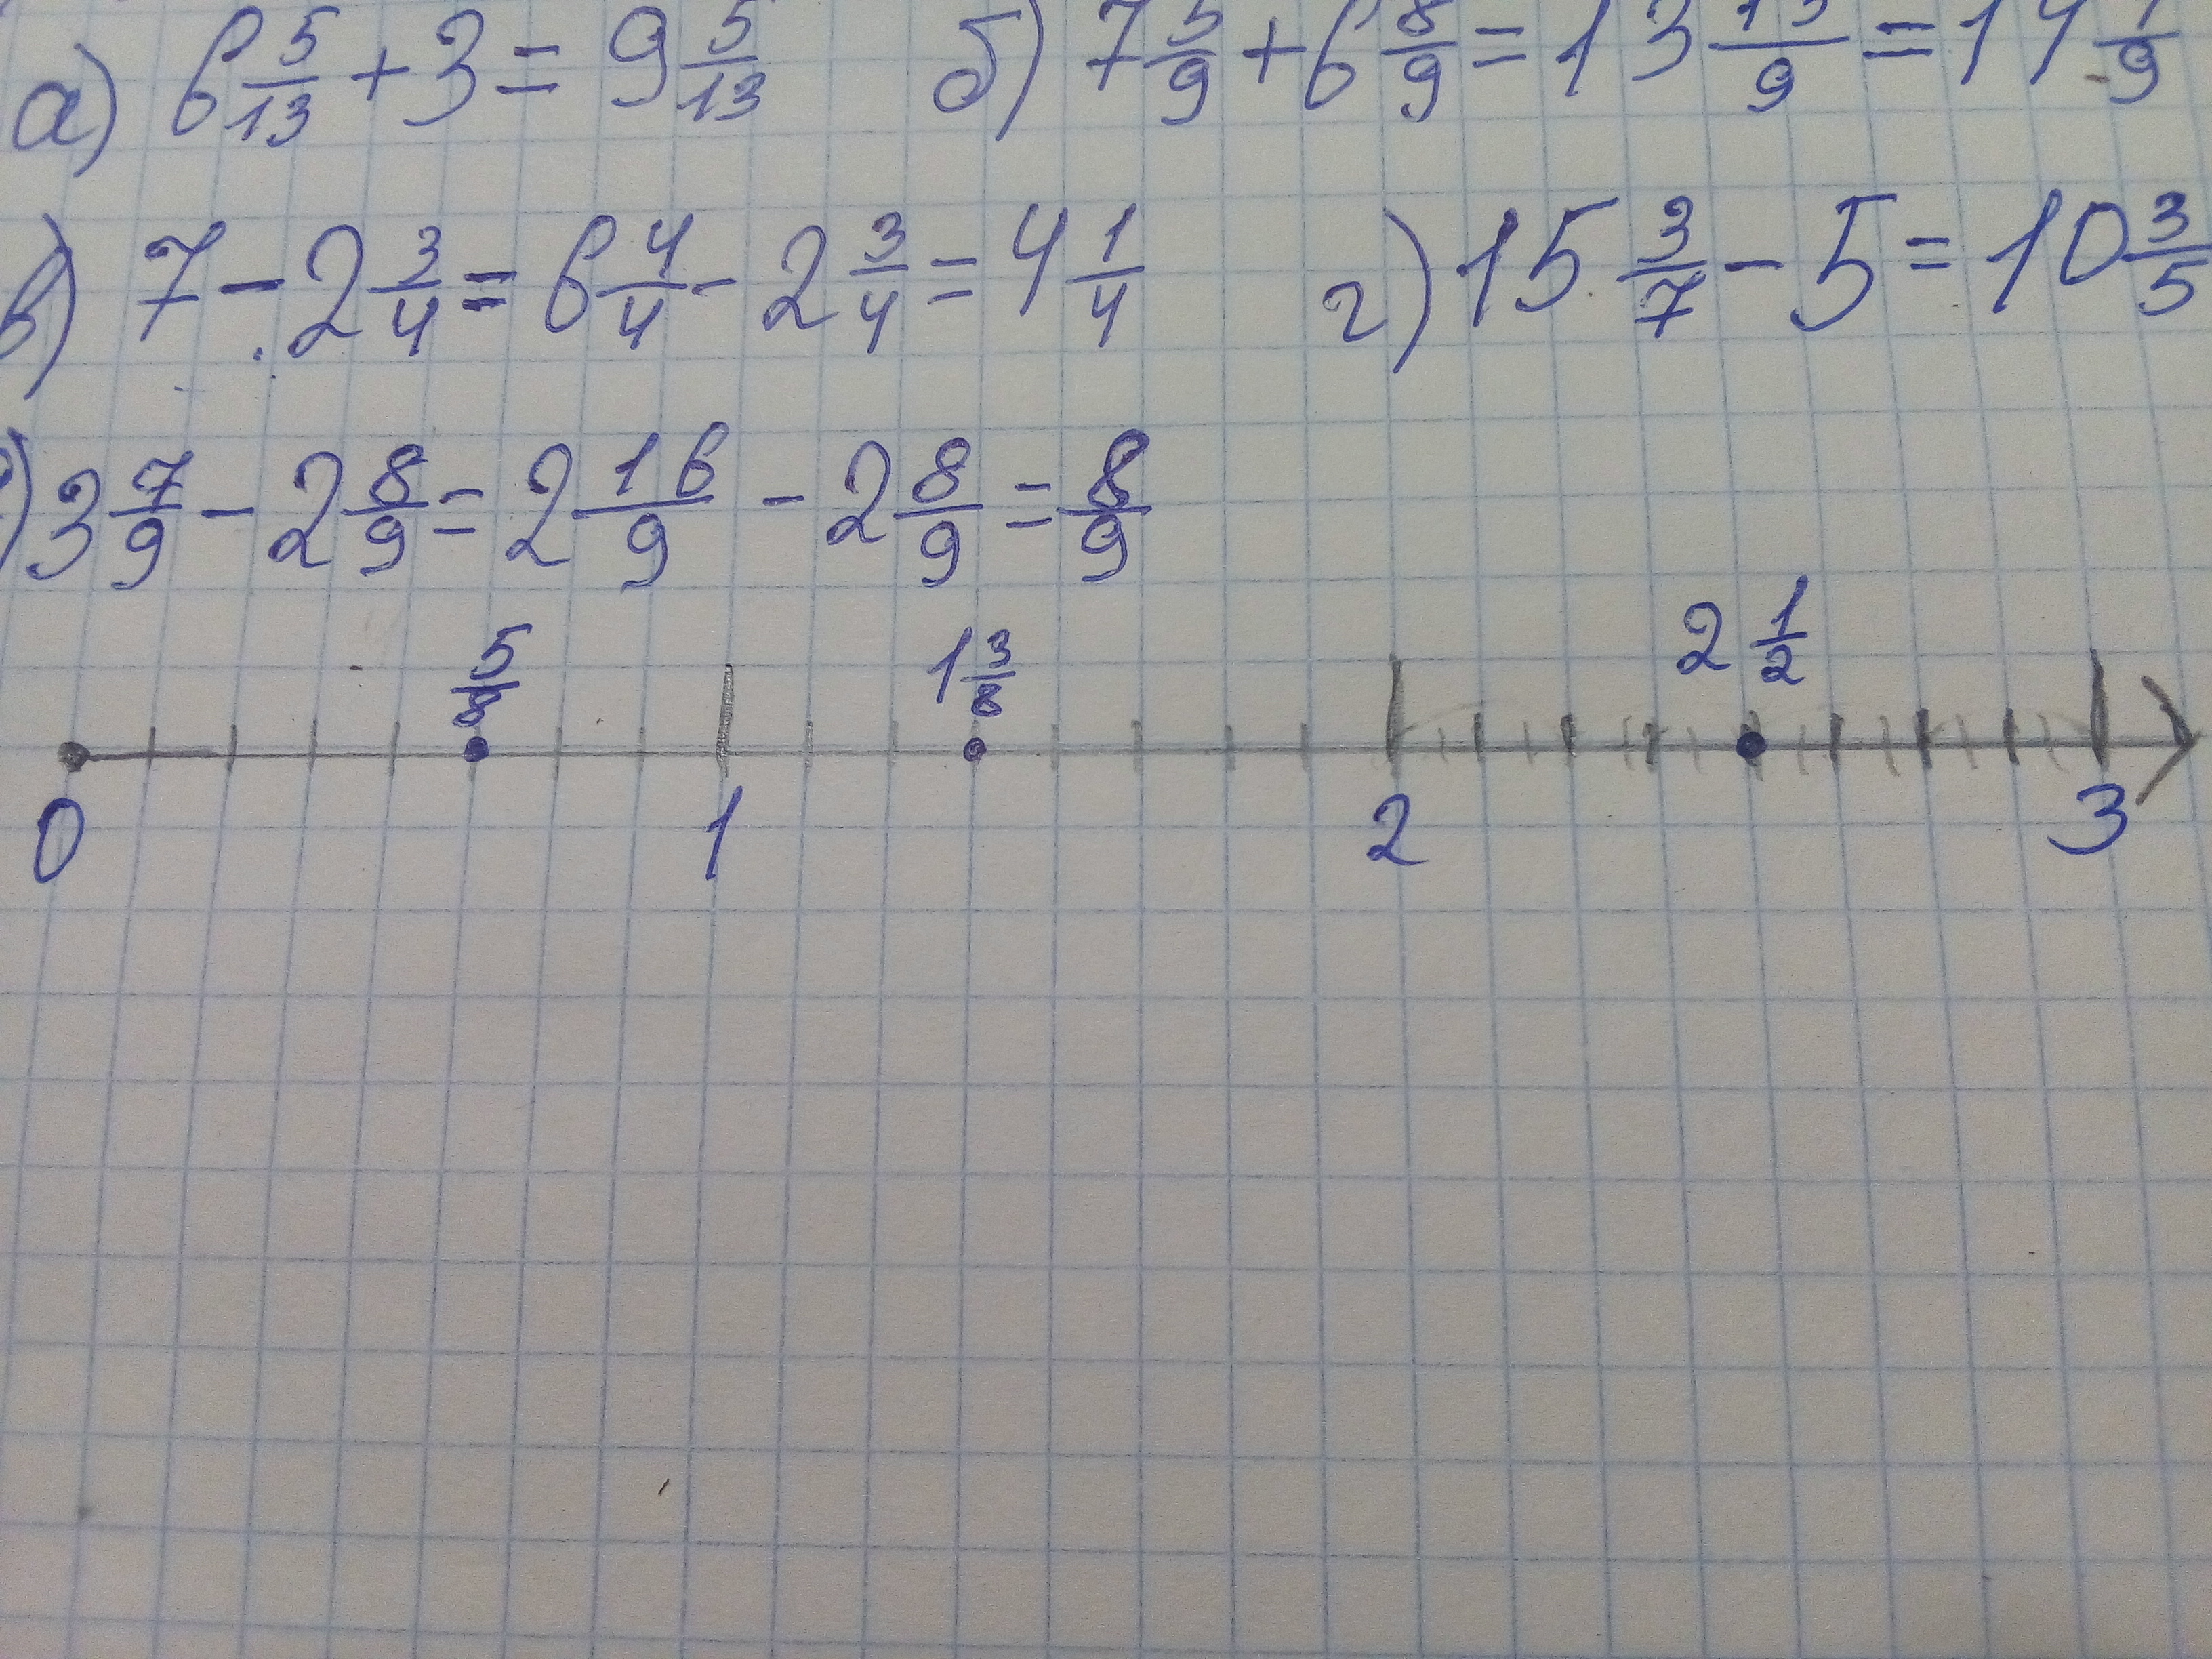 а) 6 5/13 + 3 = 9 5/13 б) 7 5/9 + 6 8/9 = 13 13/9 = 14 1/9
в) 7 - 2 3/4 = 6 4/4 - 2 3/4 = 4 1/4 г) 15 3/7 - 5 = 10 3/5
) 3 7/9 - 2 8/9 = 2 16/9 - 2 8/9 = 8/9
5/8 1 3/8 2 1/2
0 1 2 3